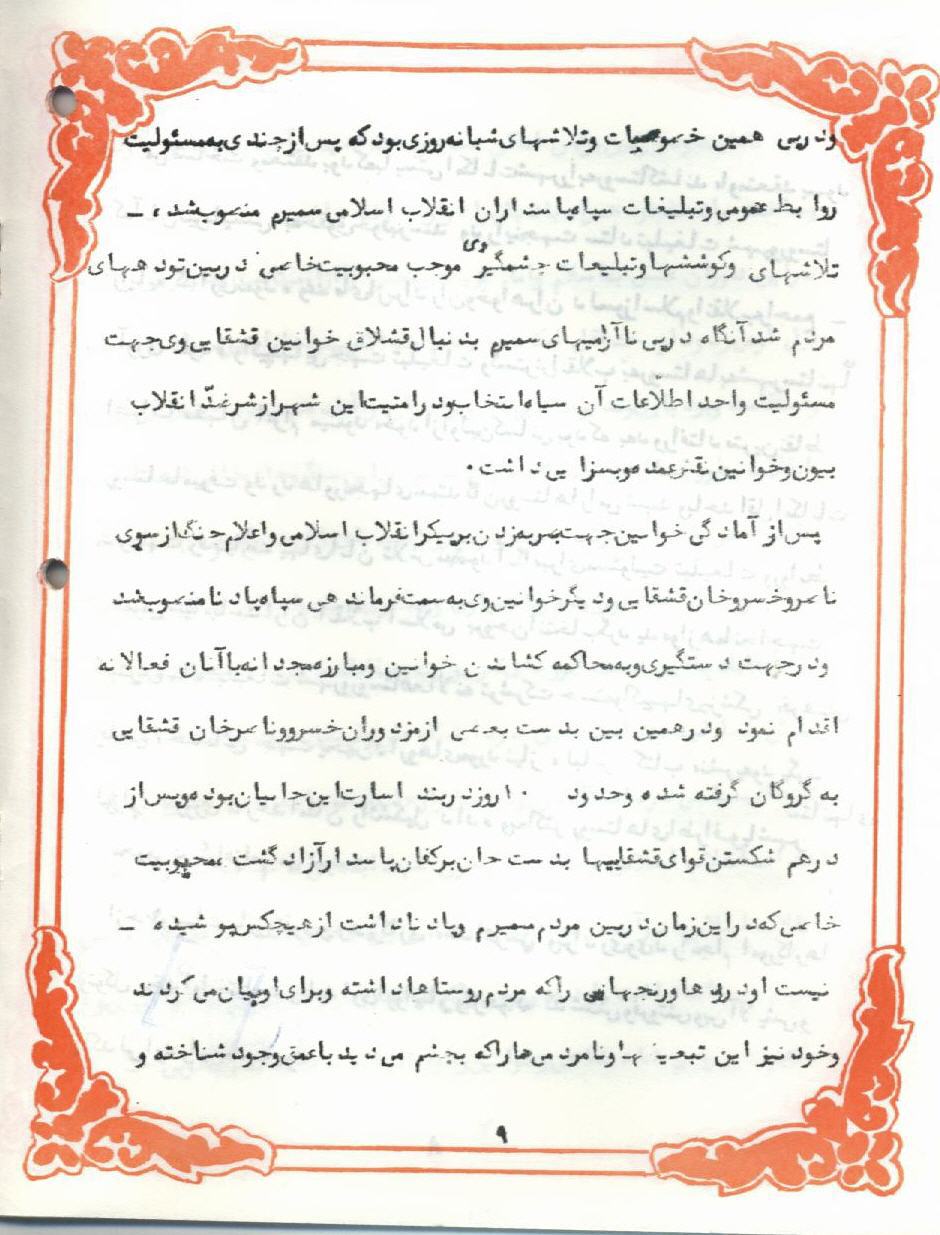 ودرپی همین خصوصیات وتلاشهای شبانه روزی بود که پس از چندی به مسئولیت
روابط عمومی وتبلیغات سپاه پاسداران انقلاب اسلامی سمیرم منصوب شد ، ـ
تلاشهای وکوششها وتبلیغات چشمگیر وی موجب محبوبیت خاصی دربین توده های
مردم شد آنگاه درپی ناآرامیهای سمیرم بدنبال قشلاق خوانین قشقایی وی جهت
مسئولیت واحد اطلاعات آن سپاه انتخاب ودرامنیت این شهر از شر ضدّ انقلاب
بیون وخوانین نقش عمده وبسزایی داشت .
پس از آمادگی خوانین جهت ضربه زدن برپیکر انقلاب اسلامی واعلام جنگ از سوی
ناصر وخسروخان قشقایی ودیگر خوانین وی به سمت فرماندهی سپاه پادنا منصوب شد
ودرجهت دستگیری وبه محاکمه کشاندن خوانین ومبارزه مجدانه باآنان فعالانه
اقدام نمود ودرهمین بین بدست بعضی ازمزدوران خسرو وناصرخان قشقایی
به گروگان گرفته شده وحدود ۱۰ روز دربند اسارت این جانیان بوده وپس از
درهم شکستن قوای قشقاییها بدست جان برکفان پاسدار آزاد گشت محبوبیت
خاصی که دراین زمان دربین مردم سمیرم وپادنا داشت از هیچکس پوشیده ـ
نیست او دردها ورنجهایی راکه مردم روستاها داشته وبرای اوبیان می کردند
وخود نیز این تبعیضها ونامردمی ها راکه بچشم می دید باعمق وجود شناخته و
۹